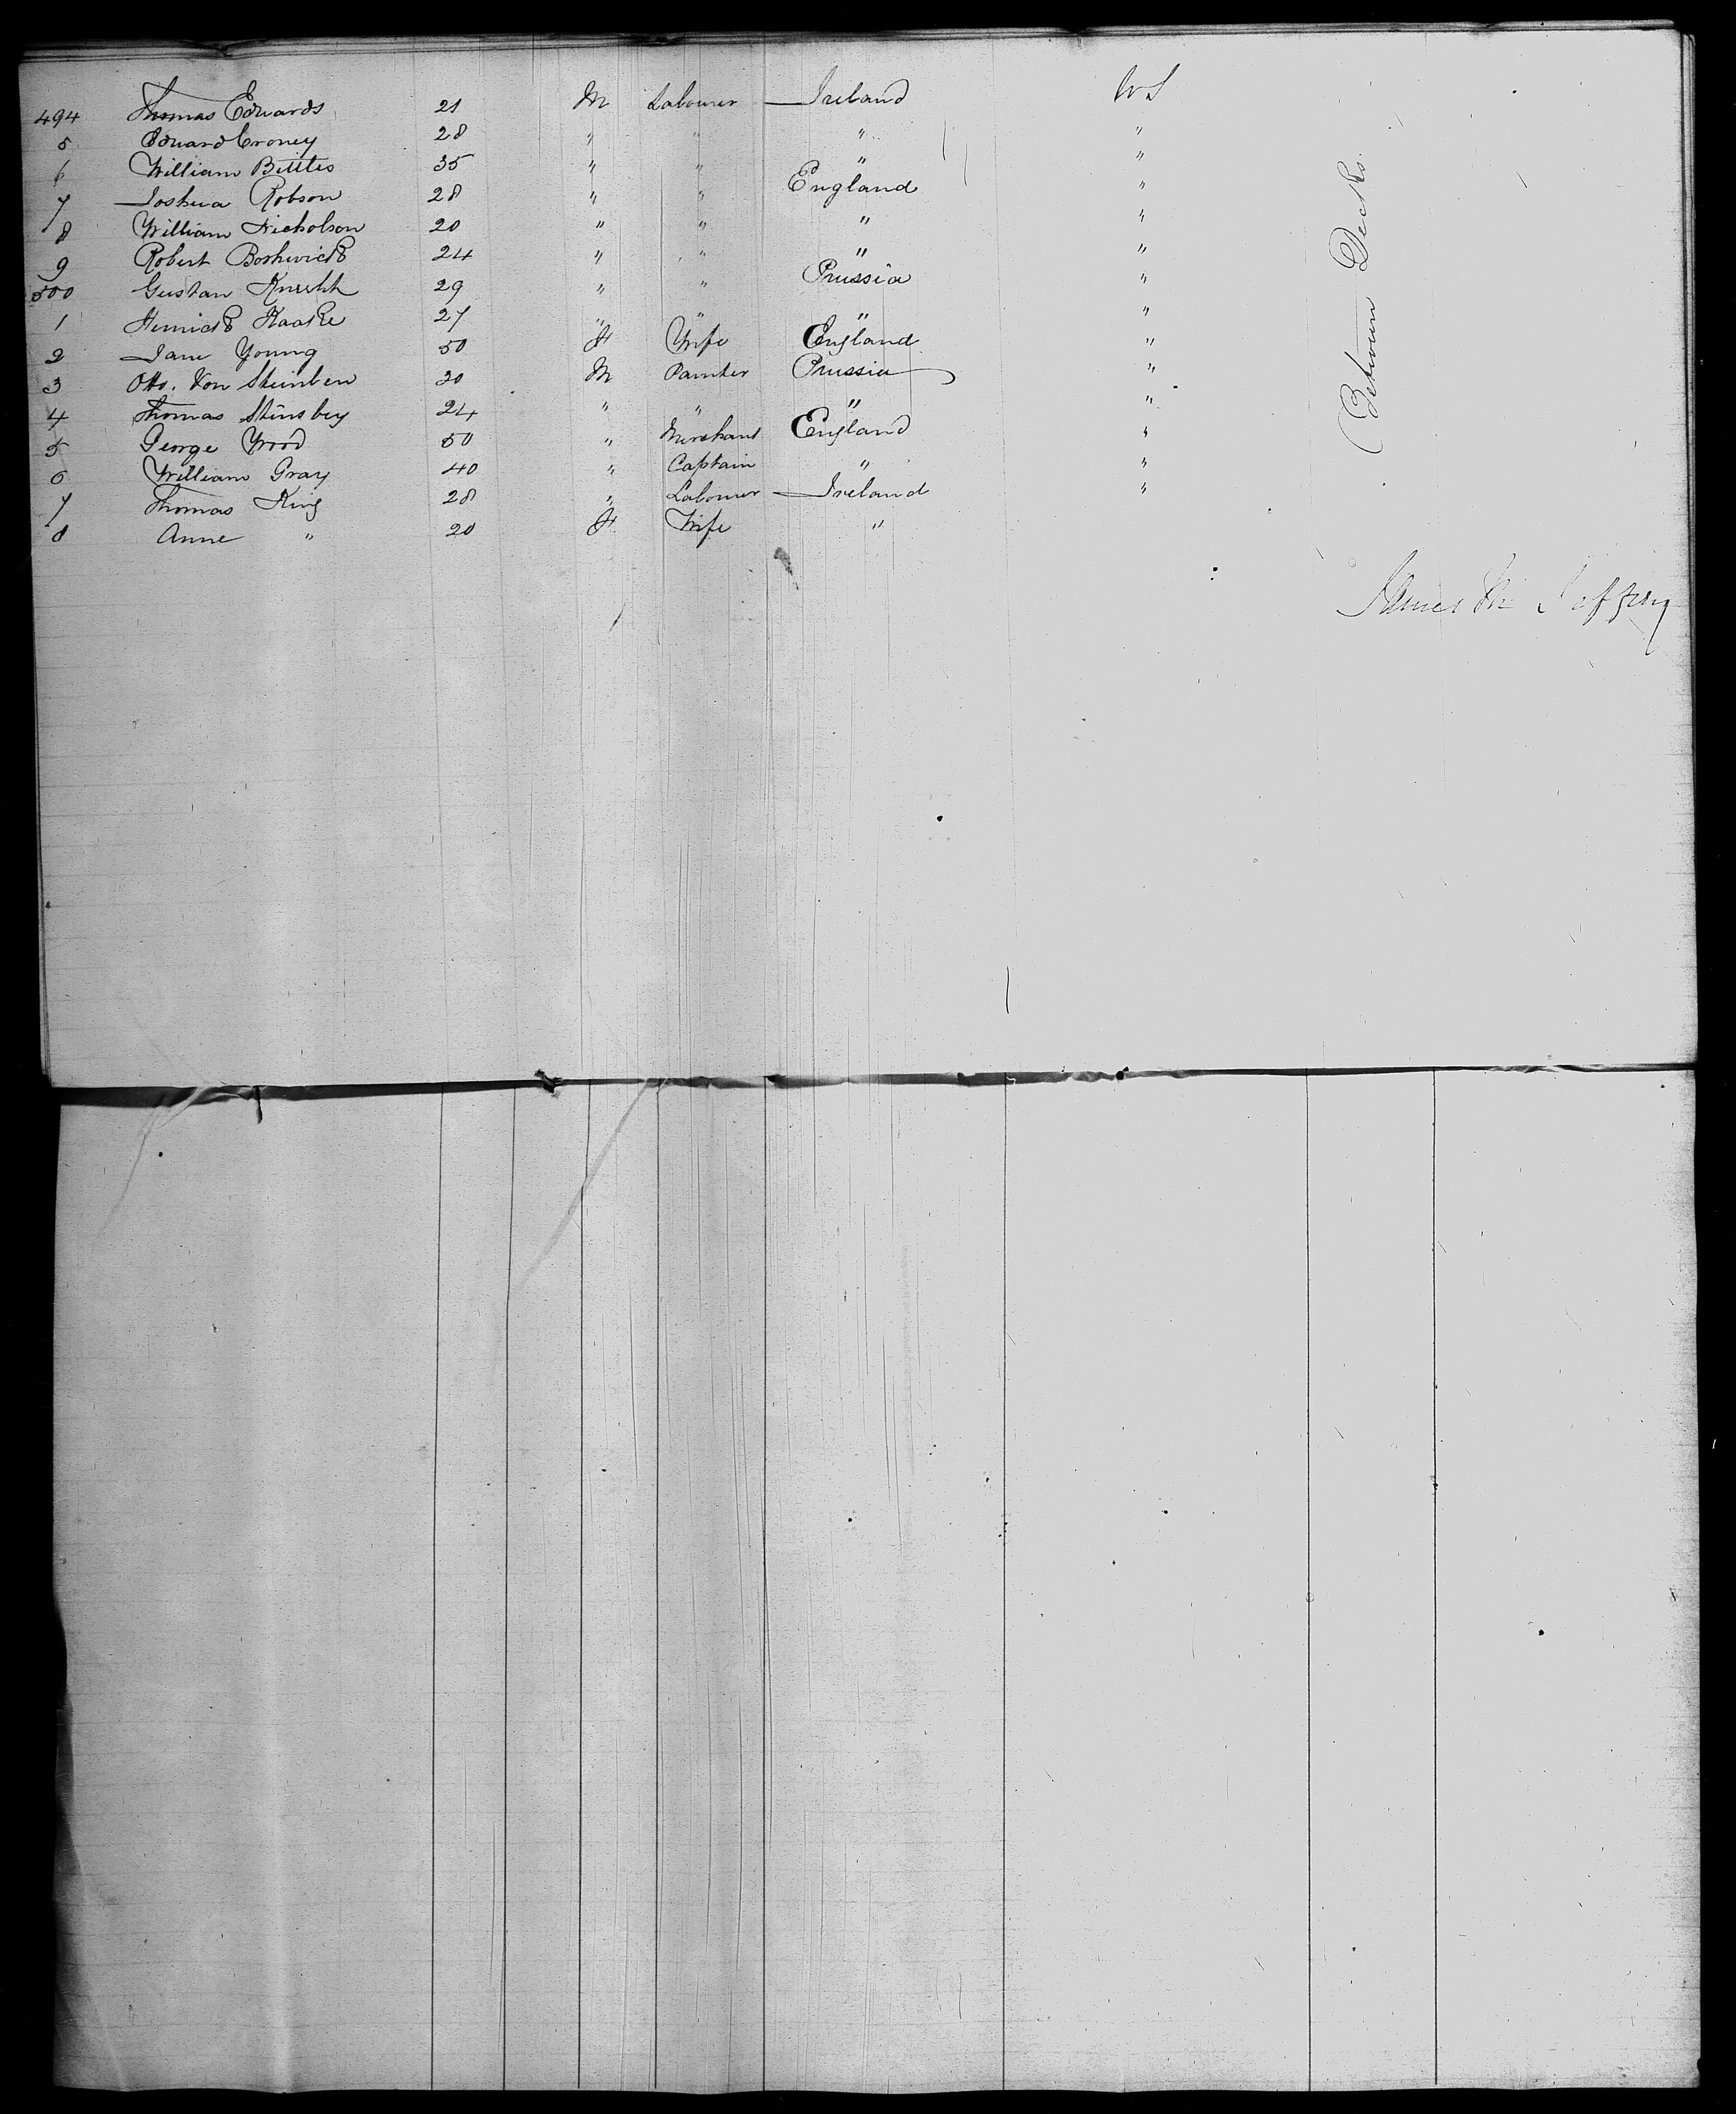 494 Thomas Edwards 21 M Labourer Ireland U S
5 Edward Croney 28 " " " "
6 William Bittles 35 " " " "
7 Joshua Robson 28 " " England "
8 William Nicholson 20 " " " "
9 Robert Borthwick 24 " " " "
500 Gustav Knecht 29 " " Prussia "
1 Henrick Kaake 27 " " "
2 Jane Young 50 F Wife England "
3 Otto. Von Steinben 20 M Painter Prussia "
4 Thomas Stinsbey 24 " " " "
5 George Wood 50 " Merchant England "
6 William Gray 40 " Captain " "
7 Thomas King 28 " Labourer Ireland "
8 Anne " 20 F Wife "
Between Decks.
James